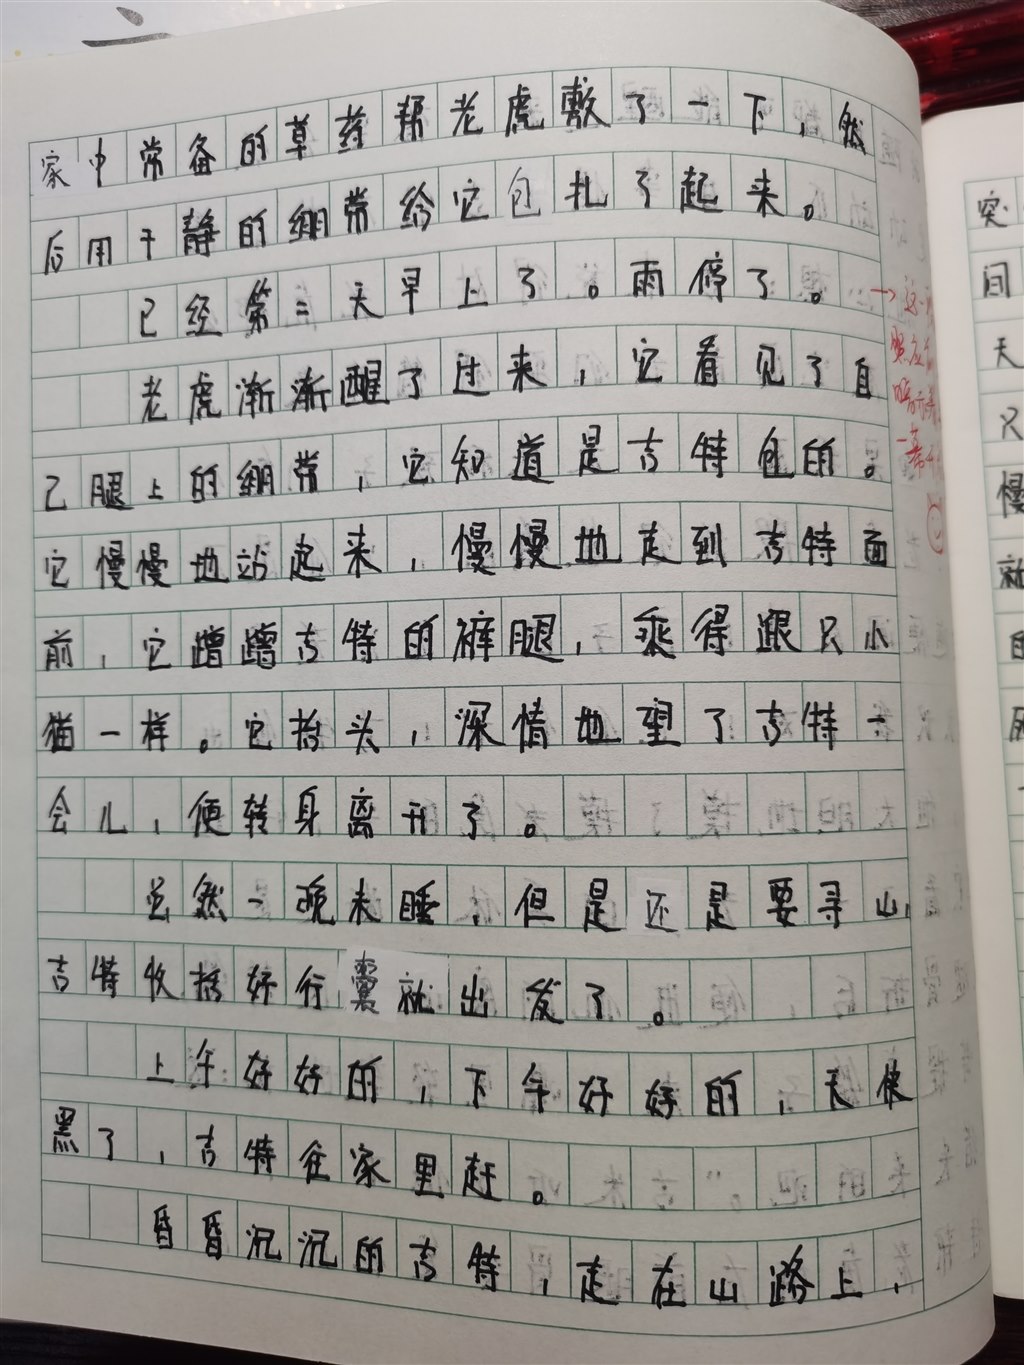 家中常备的草药帮老虎敷了一下，然
后用干静的绷带给它包扎了起来。
已经第二天早上了。雨停了。
老虎渐渐醒了过来，它看见了自
己腿上的绷带，它知道是吉特包的。
它慢慢地站起来，慢慢地走到吉特面
前，它蹭蹭吉特的裤腿，乖得跟只小
猫一样。它抬头，深情地望了吉特一
会儿，便转身离开了。
虽然一晚未睡，但是还是要寻山，
吉特收拾好行囊就出发了。
上午好好的，下午好好的，天快
黑了，吉特往家里赶。
昏昏沉沉的吉特，走在山路上，
突
间
天
只
慢
就
的